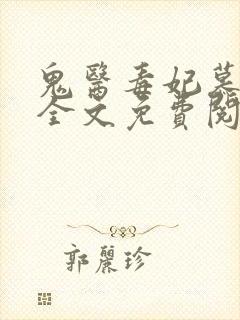 鬼醫毒妃墓
全文免費閱
郭麗珍